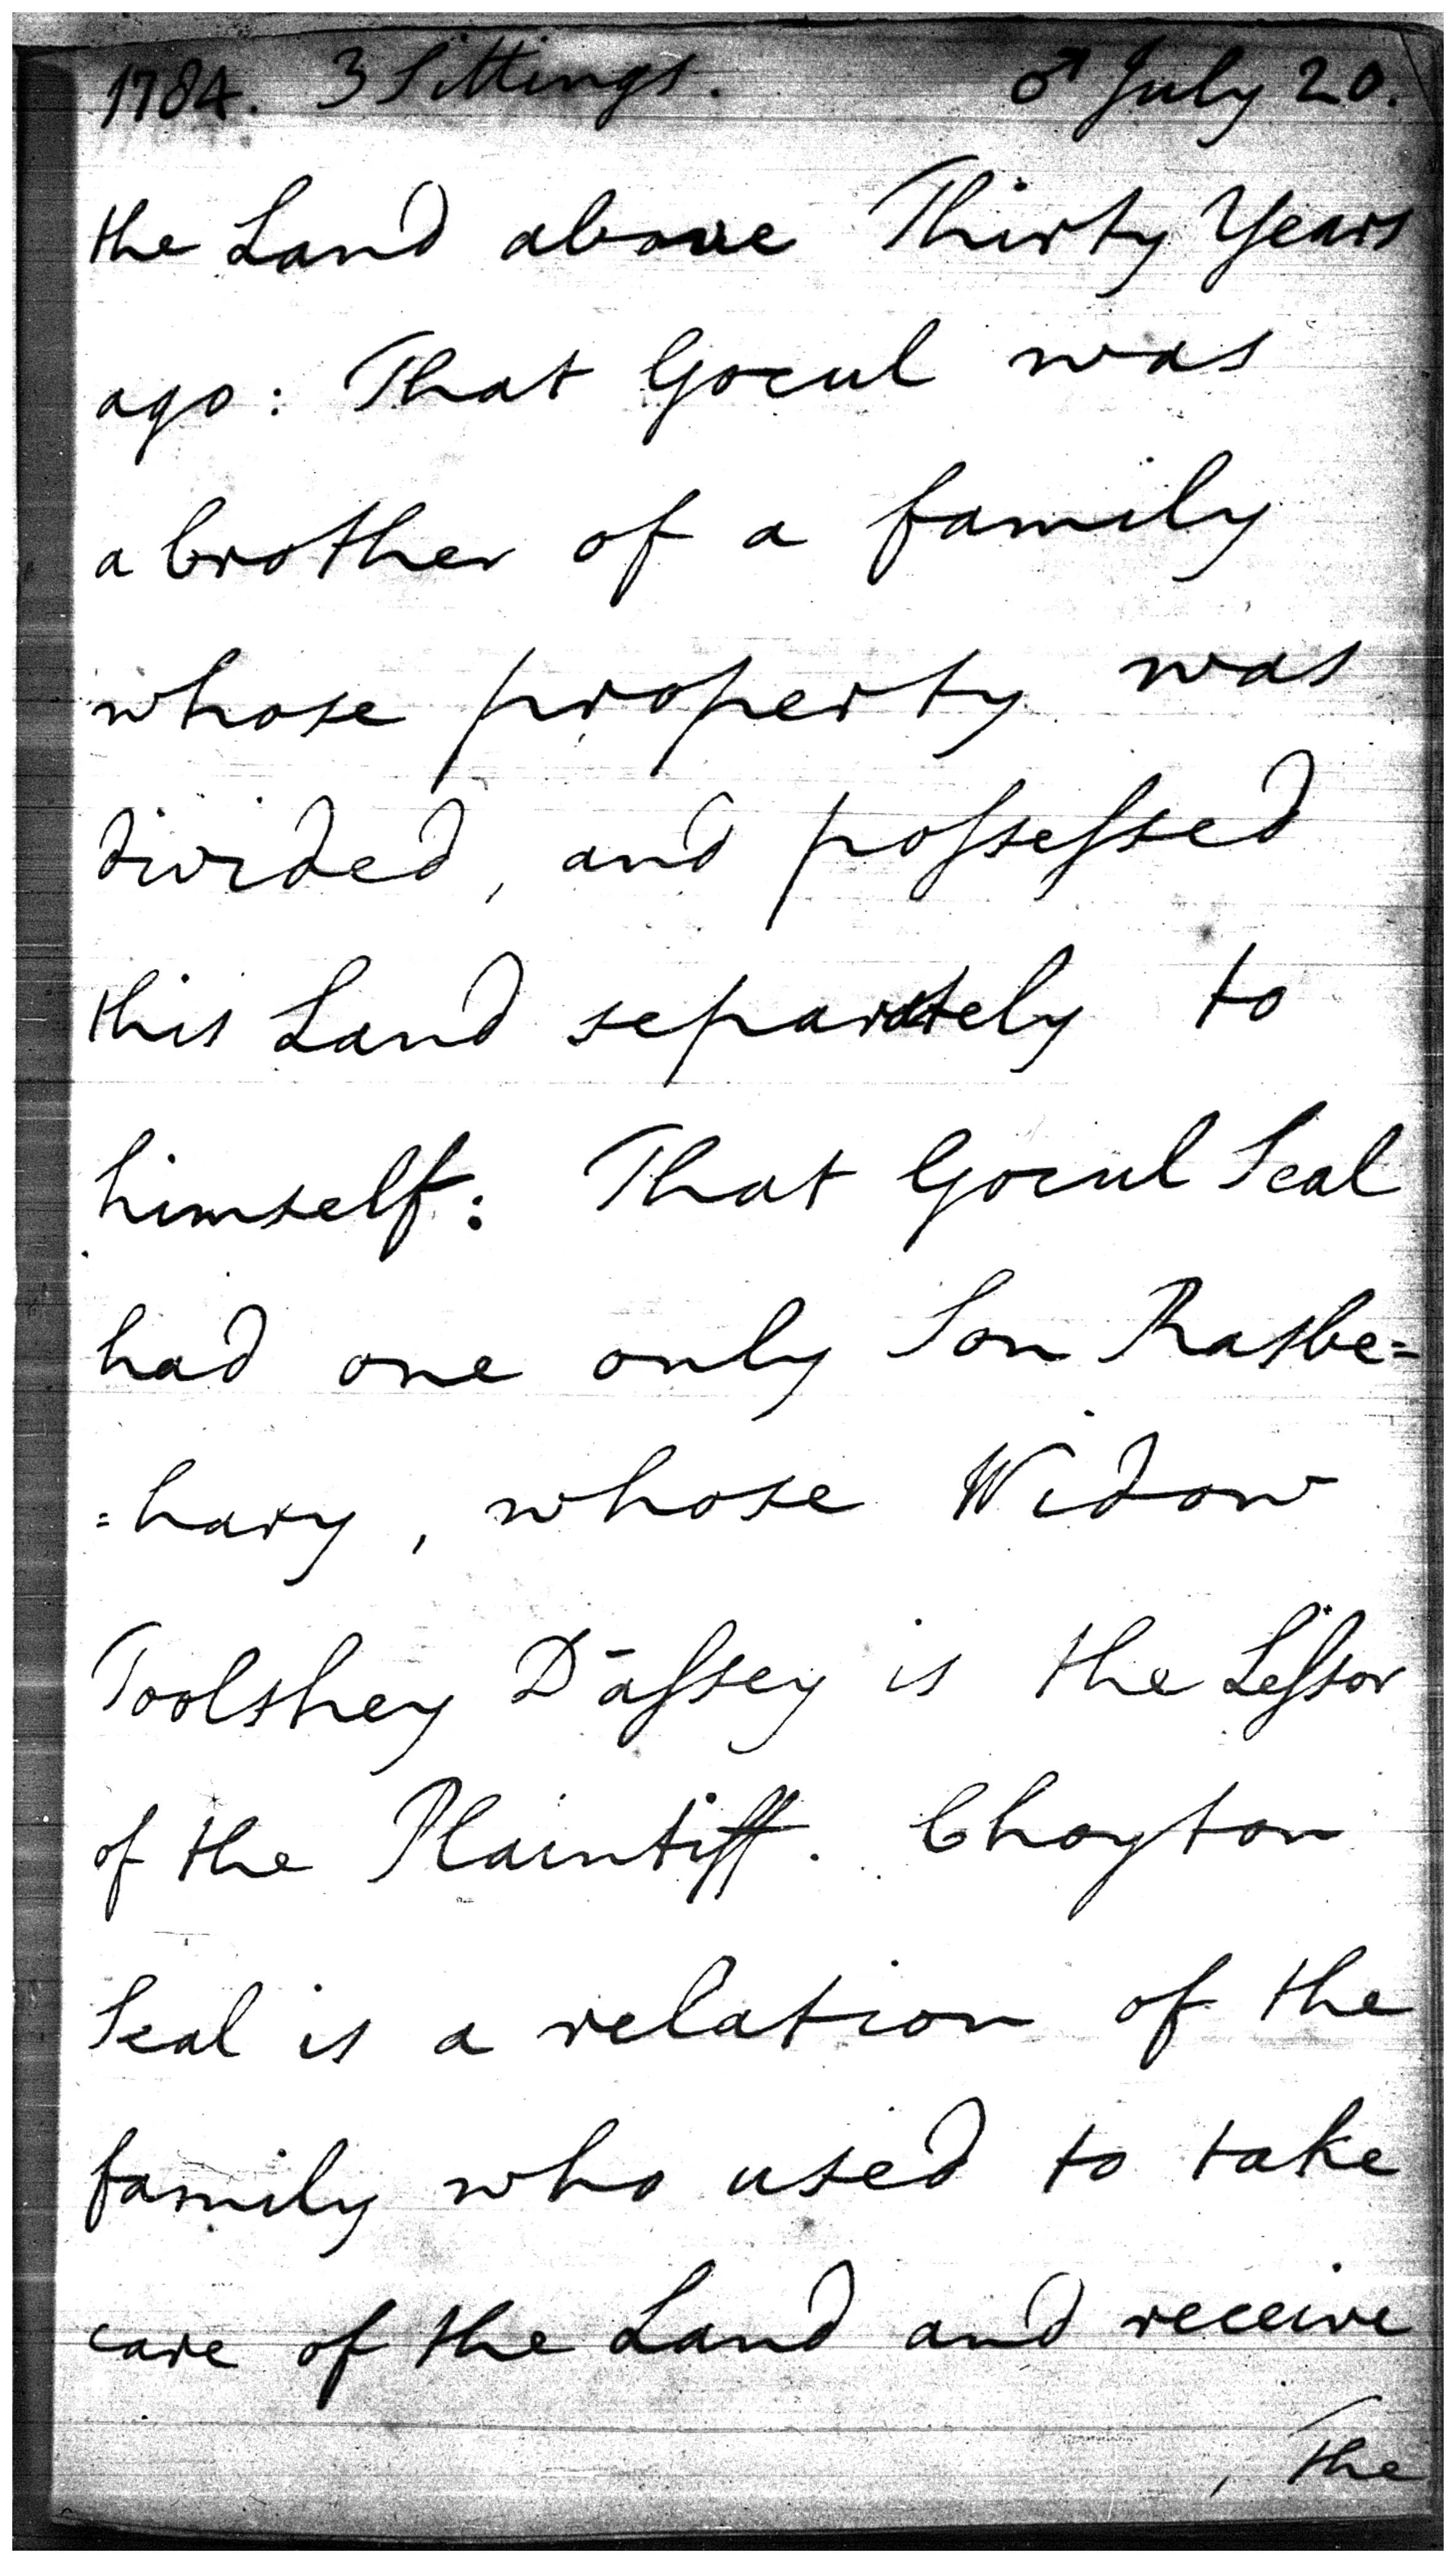 1784. 3 Sittings. ♂ July 20.
the Land above Thirty Years
ago: That Gocul was
a brother of a family
whose property was
divided, and poſseſsed
this Land separately to
himself: That Gocul Seal
had one only Son Rasbe=
=hary, whose Widow
Toolshey Dāſsey is the Leſsor
of the Plaintiff. Choyton
Seal is a relation of the
family who used to take
care of the Land and receive
, the